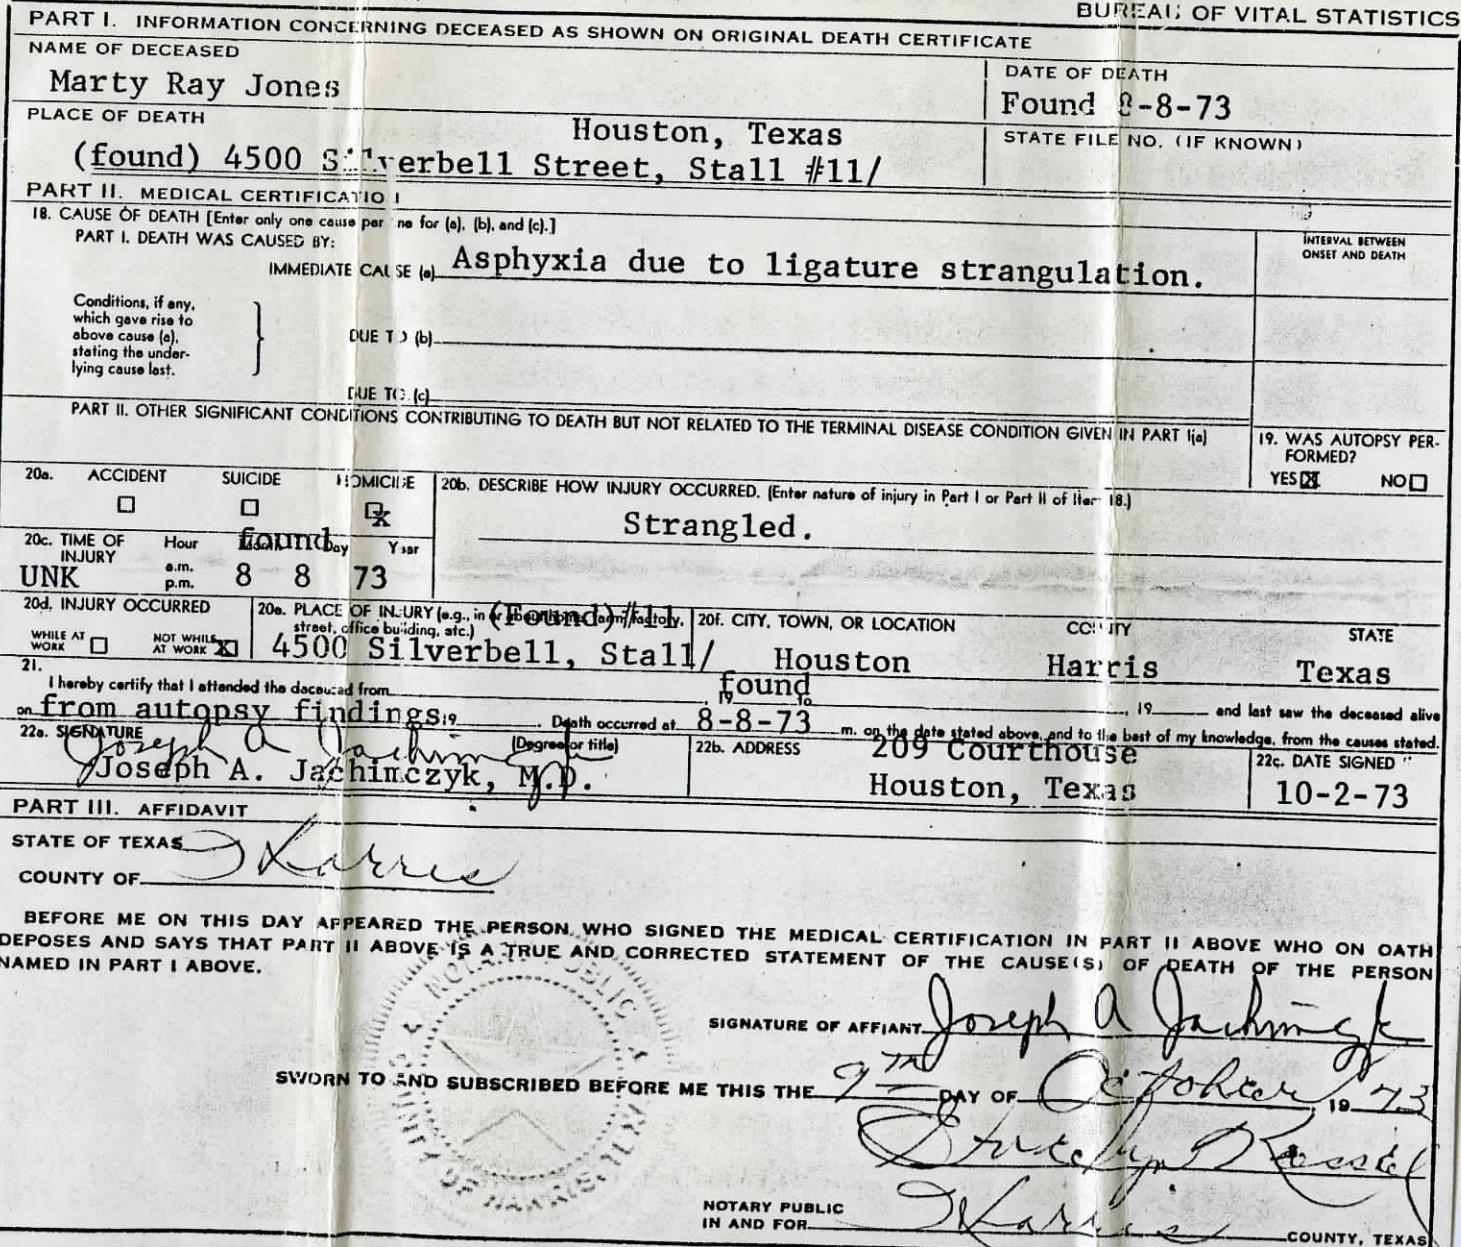 BUREAU OF VITAL STATISTICS
PART I. INFORMATION CONCERNING DECEASED AS SHOWN ON ORIGINAL DEATH CERTIFICATE
NAME OF DECEASED
Marty Ray Jones
DATE OF DEATH
Found 8-8-73
PLACE OF DEATH
Houston, Texas
(found) 4500 Silverbell Street, Stall #11/
STATE FILE NO. (IF KNOWN)
PART II. MEDICAL CERTIFICATION
18. CAUSE OF DEATH [Enter only one cause per line for (a), (b), and (c).]
PART I. DEATH WAS CAUSED BY:
IMMEDIATE CAUSE (a) Asphyxia due to ligature strangulation.
INTERVAL BETWEEN
ONSET AND DEATH
Conditions, if any,
which gave rise to
above cause (a),
stating the under-
lying cause last.
DUE TO (b)
DUE TO (c)
PART II. OTHER SIGNIFICANT CONDITIONS CONTRIBUTING TO DEATH BUT NOT RELATED TO THE TERMINAL DISEASE CONDITION GIVEN IN PART I(a)
19. WAS AUTOPSY PER-
FORMED?
YES NO
20a. ACCIDENT SUICIDE HOMICIDE
20b. DESCRIBE HOW INJURY OCCURRED. (Enter nature of injury in Part I or Part II of Item 18.)
Strangled.
20c. TIME OF INJURY Hour a.m. p.m. found Day Year
UNK 8 8 73
20d. INJURY OCCURRED
WHILE AT WORK NOT WHILE AT WORK X
20e. PLACE OF INJURY (e.g., in or about home, farm, factory, street, office building, etc.)
(Found) #11
4500 Silverbell, Stall/
20f. CITY, TOWN, OR LOCATION COUNTY STATE
Houston Harris Texas
21.
I hereby certify that I attended the deceased from 19 to , 19 and last saw the deceased alive
found
on from autopsy findings 19 . Death occurred at 8-8-73 m. on the date stated above, and to the best of my knowledge, from the causes stated.
22a. SIGNATURE (Degree or title)
Joseph A Jachimczyk
Joseph A. Jachimczyk, M.D.
22b. ADDRESS
209 Courthouse
Houston, Texas
22c. DATE SIGNED
10-2-73
PART III. AFFIDAVIT
STATE OF TEXAS
COUNTY OF Harris
BEFORE ME ON THIS DAY APPEARED THE PERSON WHO SIGNED THE MEDICAL CERTIFICATION IN PART II ABOVE WHO ON OATH
DEPOSES AND SAYS THAT PART II ABOVE IS A TRUE AND CORRECTED STATEMENT OF THE CAUSE(S) OF DEATH OF THE PERSON
NAMED IN PART I ABOVE.
NOTARY PUBLIC
COUNTY OF HARRIS
SIGNATURE OF AFFIANT Joseph A Jachimczyk
SWORN TO AND SUBSCRIBED BEFORE ME THIS THE 9TH DAY OF October, 19 73
NOTARY PUBLIC
IN AND FOR Harris COUNTY, TEXAS